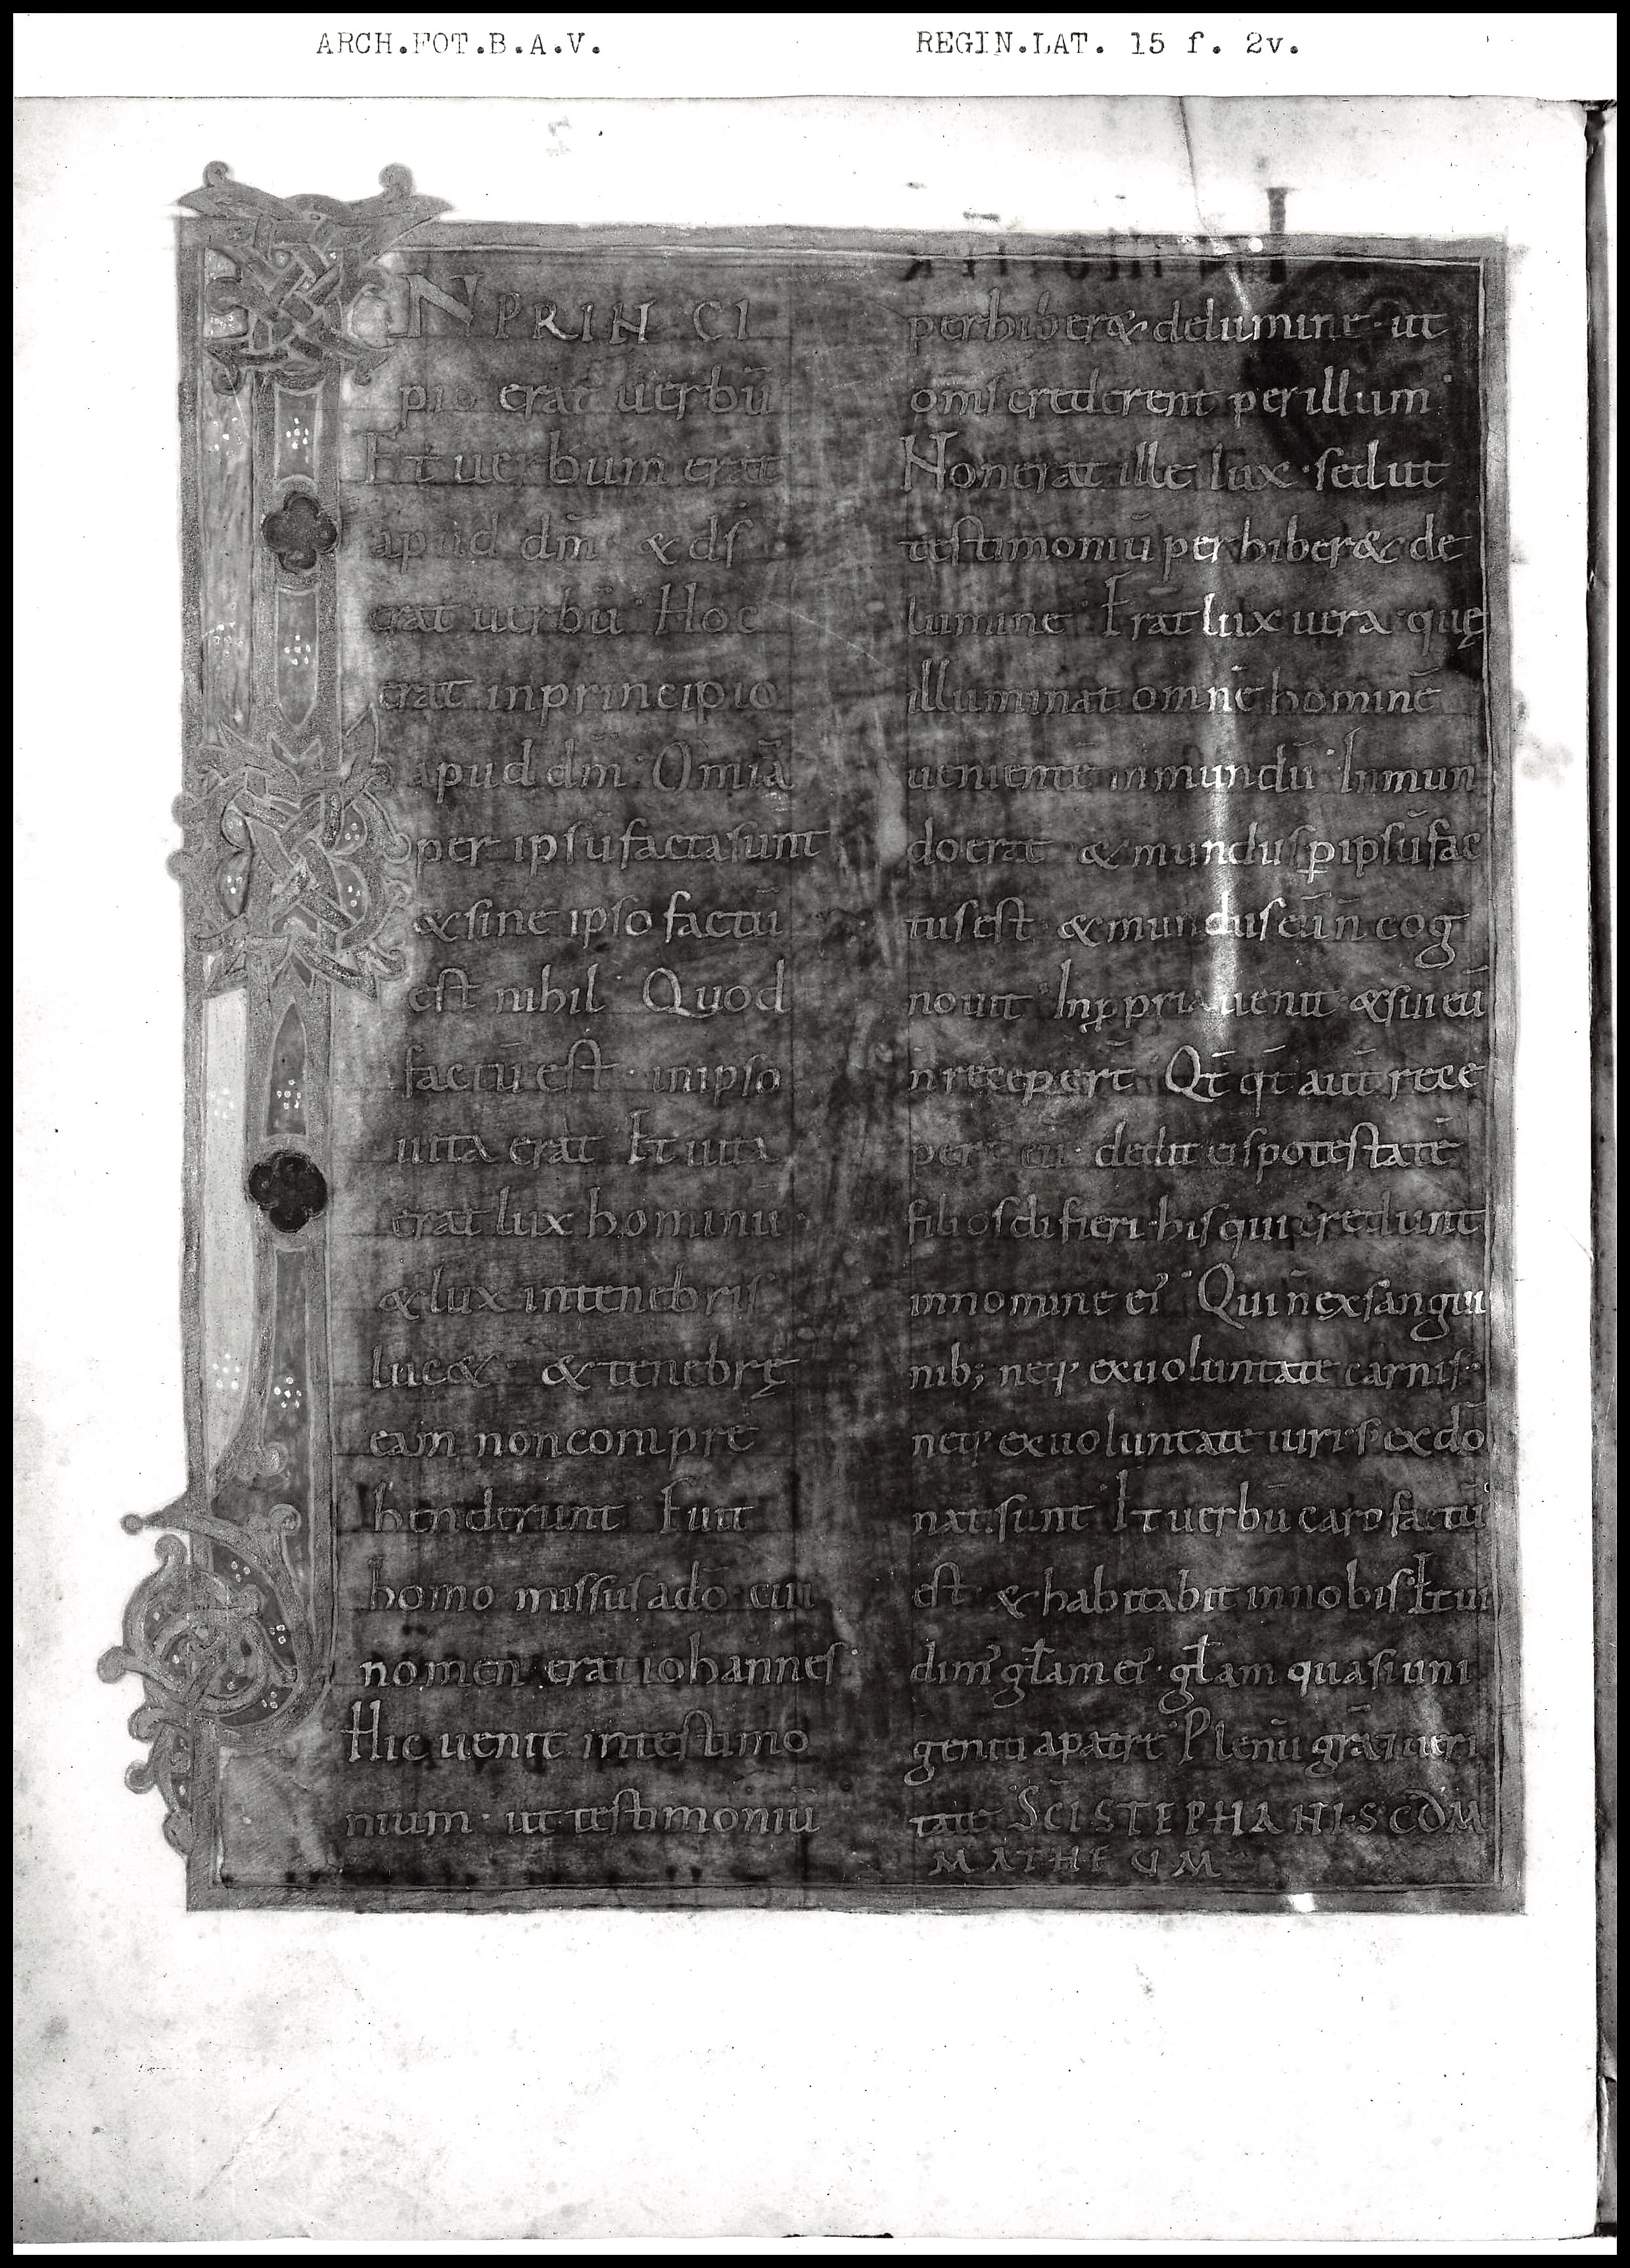 ARCH.FOT.B.A.V. REGIN.LAT. 15 f. 2v.
IN PRINCI
pio erat uerbū
Et uerbum erat
apud dm̄ & ds̄
erat uerbū Hoc
erat inprincipio
apud dm̄ Omīa
per ipsū facta sunt
& sine ipso factū
est nihil Quod
factū est · inipso
uita erat Et uita
erat lux hominū ·
& lux intenebris
luc& · & tenebrę
eam non compre
henderunt Fuit
homo missus adō cui
nomen erat iohannes ·
Hic uenit intestimo
nium · ut testimoniū
perhiber& delumine · ut
oms̄ crederent per illum ·
Non erat ille lux · sed ut
testimoniū perhiber& de
lumine Erat lux uera quę
illuminat omnē hominē
uenientē inmundū Inmun
do erat & mundus ꝑ ipsū fac
tus est & mundus eū n̄ cog
nouit In ꝓpria uenit & sui eū
n̄ receper̄t Qt̄qt̄ aūt rece
per̄t eū · dedit eis potestatē
filios dī fieri · his qui credunt
innomine ei᾽ Qui n̄ ex sangui
nib; neq· exuoluntate carnis ·
neq· exuoluntate uiri · s· ex dō
nati sunt Et uerbū caro factū
est · & habitabit innobis Et ui
dim᾽ gł̄am ei᾽ · gł̄am quasi uni
geniti apatre Plenū grā⁊ ueri
tate SC̄I STEPHANI · S C̄D̄M
MATHEUM